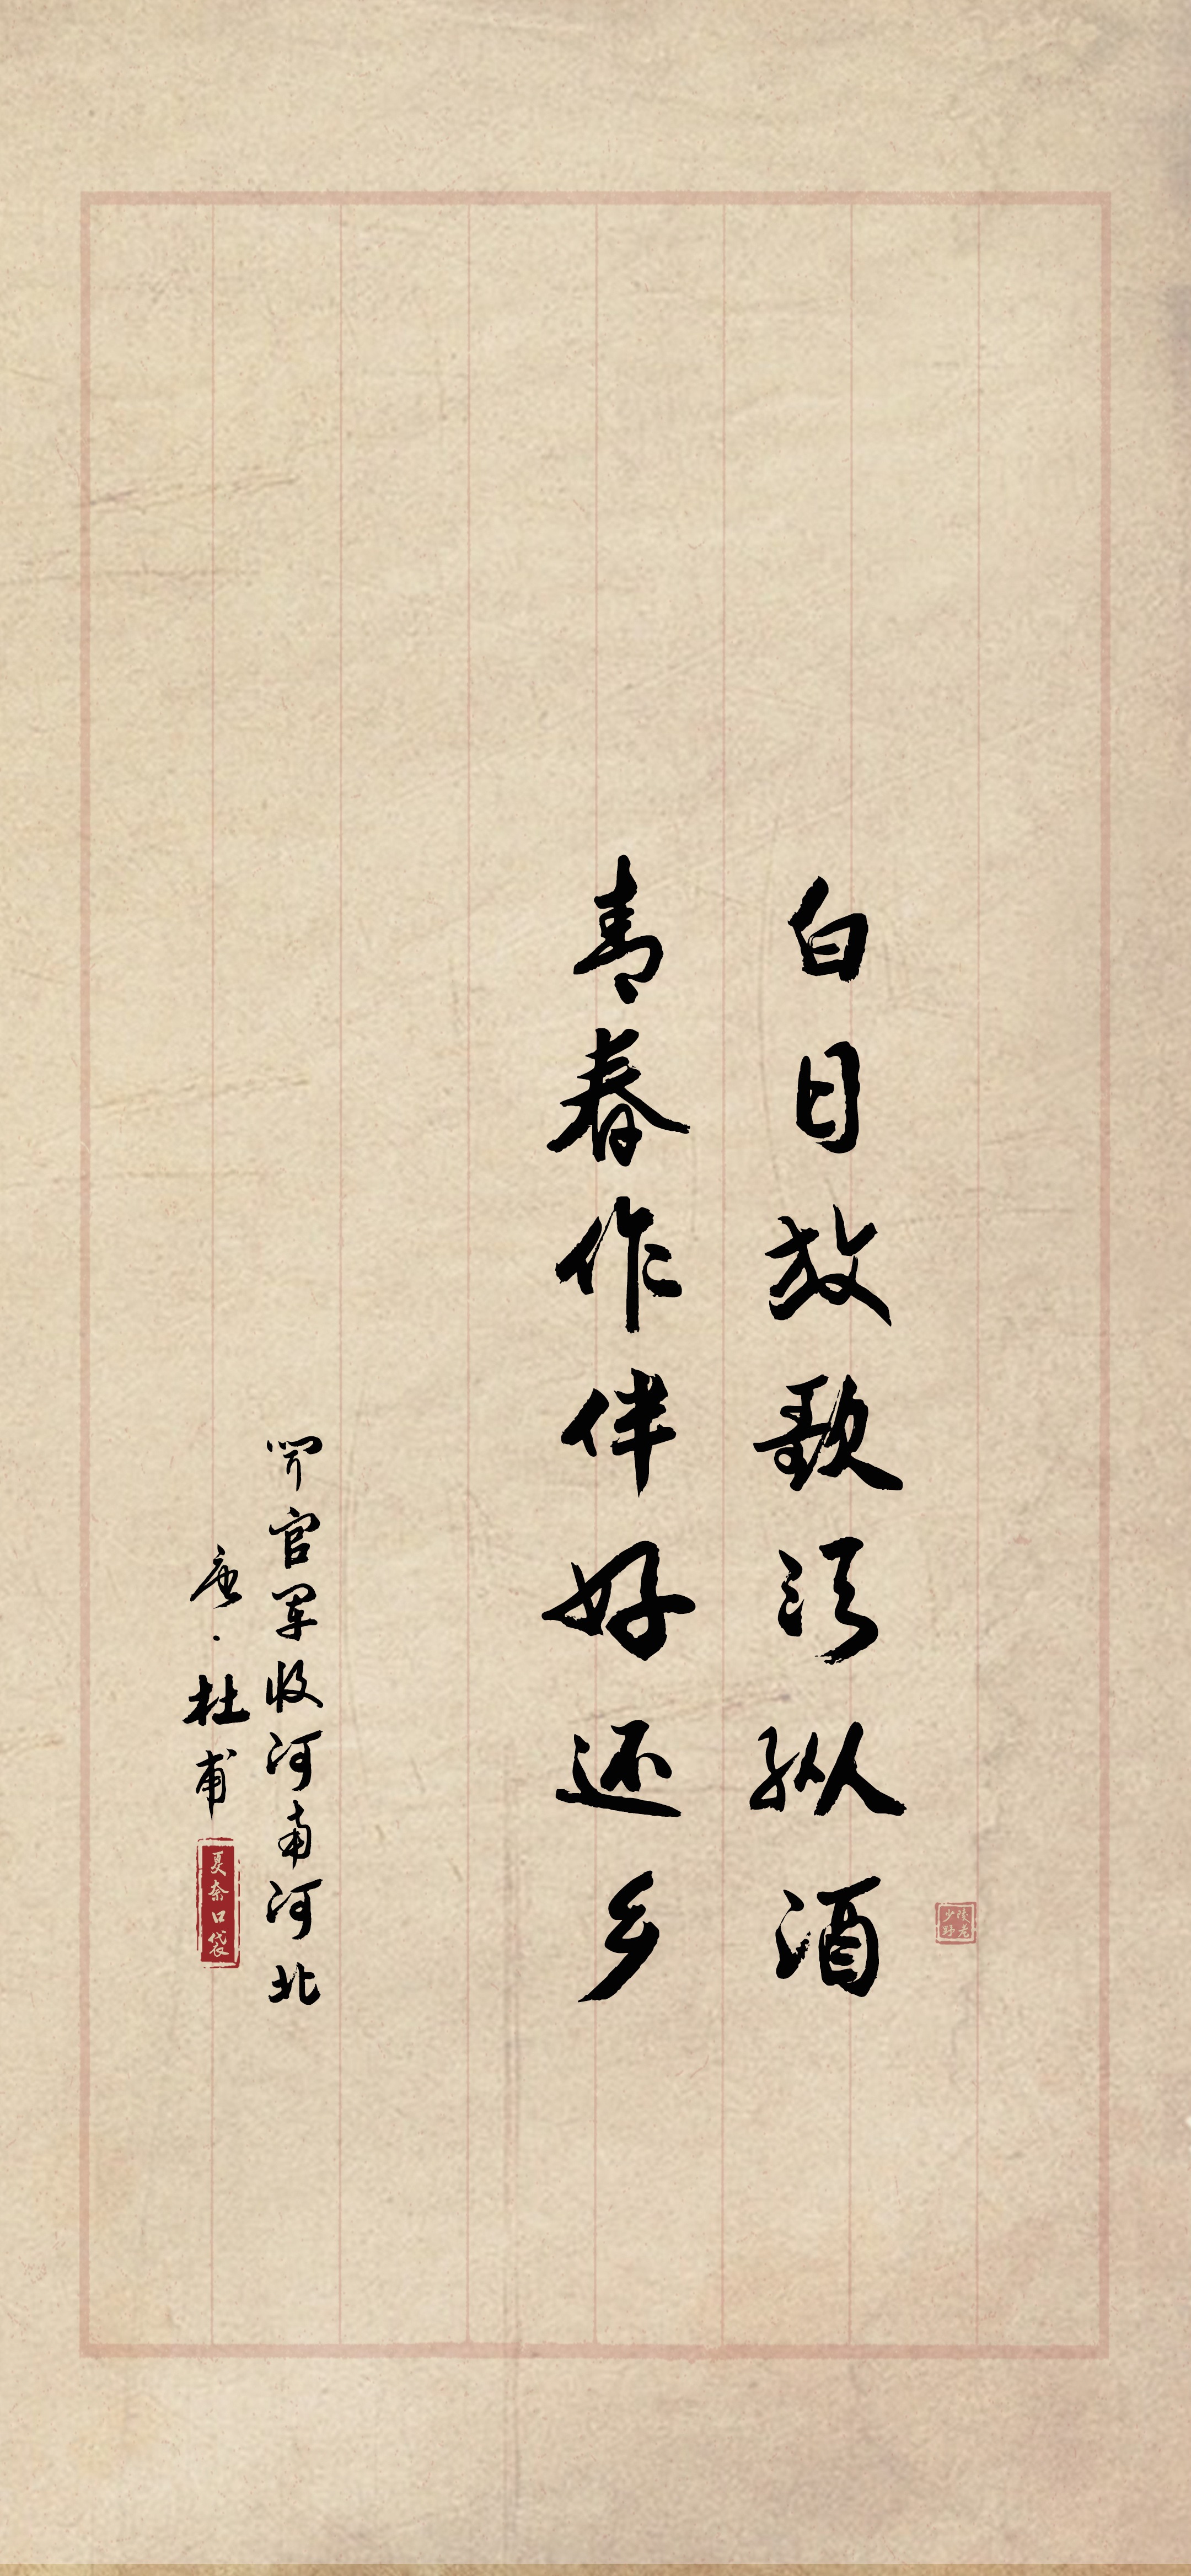 白日放歌须纵酒
青春作伴好还乡
闻官军收河南河北
唐·杜甫
夏奈口袋
少陵野老